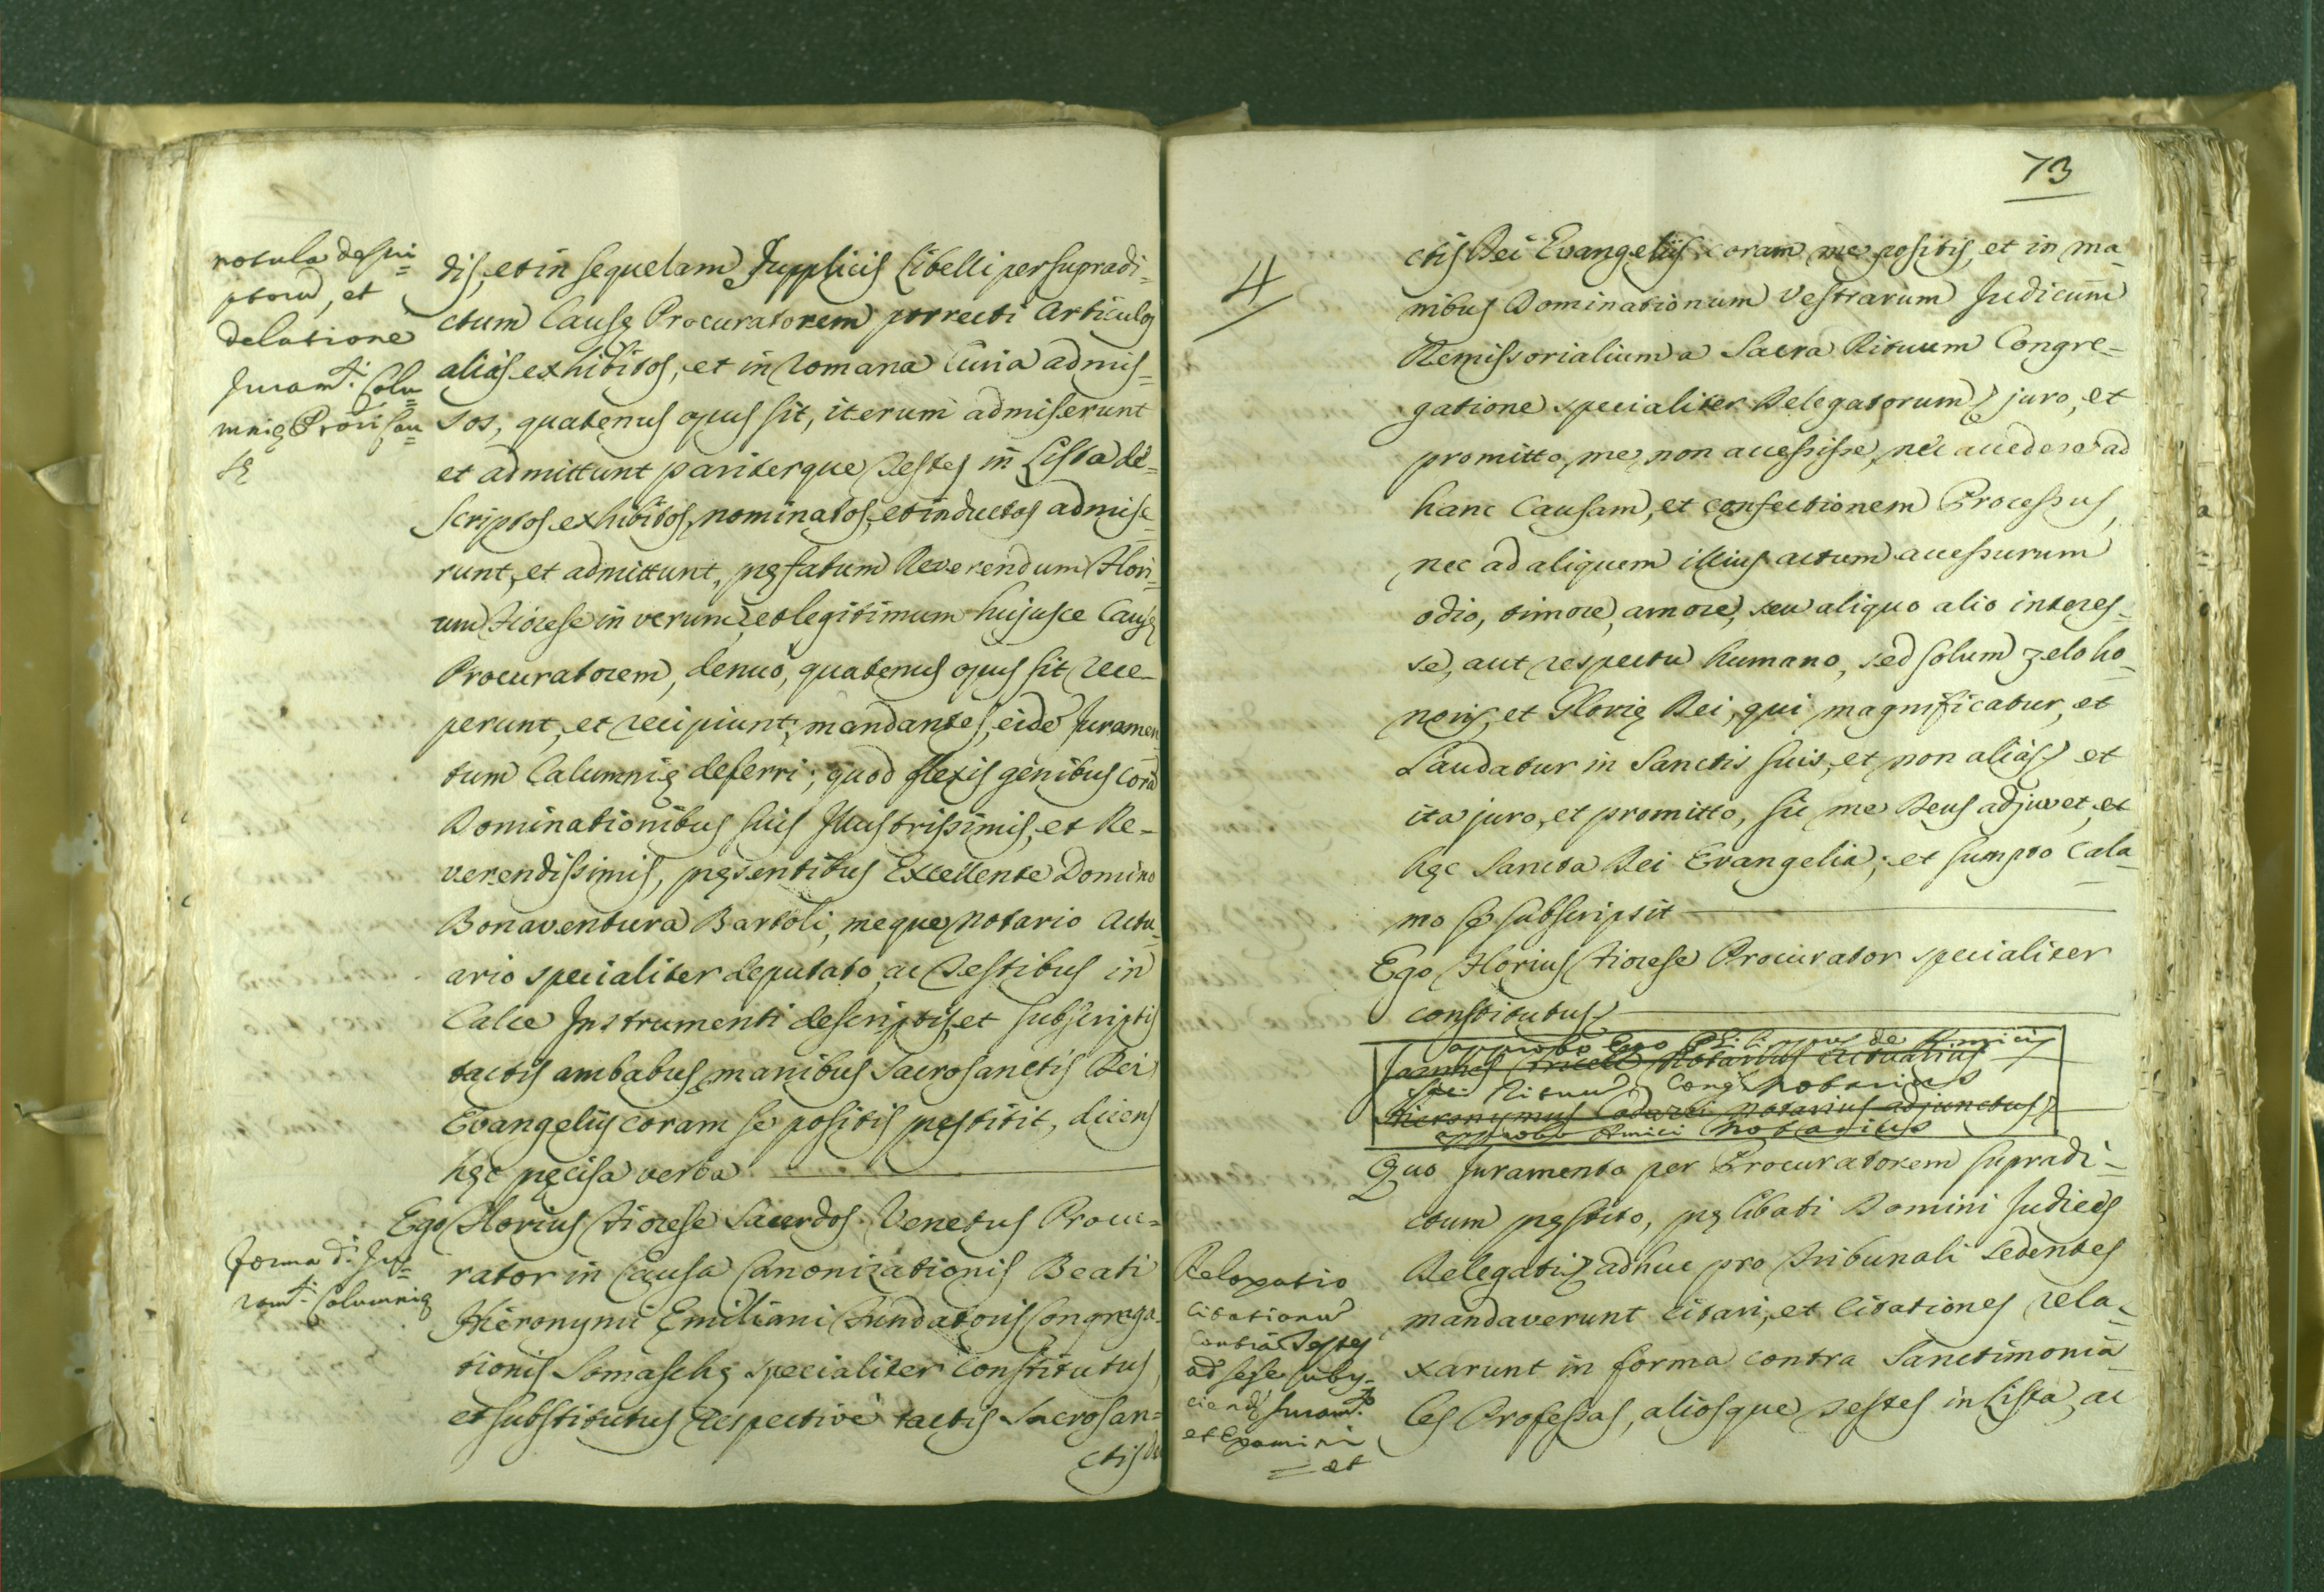 notula descri=
ptorū, et
delatione
Juramti. Calu=
mnię Prōri Cau=
sę
dis, et in sequelam Supplicis Libelli per supradi=
ctum Causę Procuratorem porrecti Articulos
aliàs exhibitos, et in Romana Curia admis=
sos, quatenus opus sit, iterum admiserunt
et admittunt pariterque Testes in Lista de=
scriptos exhibitos, nominatos, et inductos admise=
runt, et admittunt, pręfatum Reverendum Flori=
um Fiorese in verum, et legitimum hujusce Causę
Procuratorem, denuò, quatenus opus sit rece=
perunt, et recipiunt; mandantes, eidē Juramen
tum Calumnię deferri; quod flexis genibus corā
Dominationibus suis Illustrissimis, et Re=
verendissimis, pręsentibus Excellente Domino
Bonaventura Bartoli, meque Notario Actu=
ario specialiter deputato, ac Testibus in
Calce Instrumenti descriptis, et subscriptis
tactis ambabus manibus Sacrosanctis Dei
Evangelijs coram se positis pręstitit, dicens
hęc pręcisa verba
Ego Florius Fiorese Sacerdos Venetus Procu=
forma di. Ju=
ramti. Calumnię
rator in Causa Canonizationis Beati
Hieronymi Emiliani Fundatoris Congrega=
tionis Somaschę specialiter Constitutus,
et substitutus respectivè tactis Sacrosan=
ctis De
73
4
ctis Dei Evangelijs coram me positis, et in ma=
nibus Dominationum Vestrarum Judicum
Remissorialium a Sacra Rituum Congre=
gatione specialiter Delegatorum juro, et
promitto, me, non accessisse, nec accedere ad
hanc Causam, et confectionem Processus,
nec ad aliquem illius actum accessurum
odio, timore, amore, seu aliquo alio interes=
se, aut respectu humano, sed solum zelo ho=
noris, et Glorię Dei, qui magnificatur, et
Laudatur in Sanctis suis, et non aliàs, et
ita juro, et promitto, sic me Deus adjuvet, et
hęc Sancta Dei Evangelia; et sumpto Cala=
mo se subscripsit
Ego Florius Fiorese Procurator specialiter
constitutus
approbo Ego Philippus de Amicis
Notarius Actuarius
Rituum Congis Notarius
Hieronymus Notarius adjunctus
approbo Amici Notarius
Quo Juramento per Procuratorem supradi=
ctum pręstito, pręlibati Domini Judices
Relaxatio
Citationū
contrà Testes
ad sese subij=
ciendū Juramto.
et Examini
= et
Delegati, adhuc pro Tribunali sedentes
mandaverunt citari, et citationes rela=
xarunt in forma contra Sanctimonia=
les Professas, aliosque Testes in Lista, ac